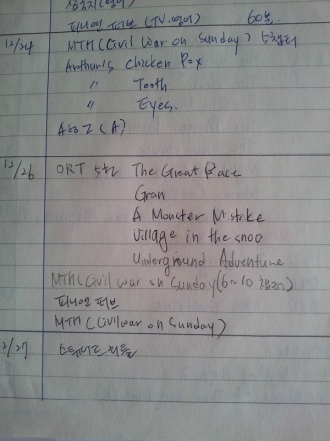 피니앤 퍼브 (TV.영어) 60분.
12/24 MTH (Civil War on Sunday) 5챕터
Arthur's Chicken Pox
" Tooth
" Eyes.
A to Z (A)
12/26 ORT 5단 The Great Race
Gran
A Monster Mistike
Village in the snoo
Underground Adventure
MTH (Civil war on Sunday (6~10 챕터)
피니앤 퍼브
MTH (Civil war on Sunday)
2/27